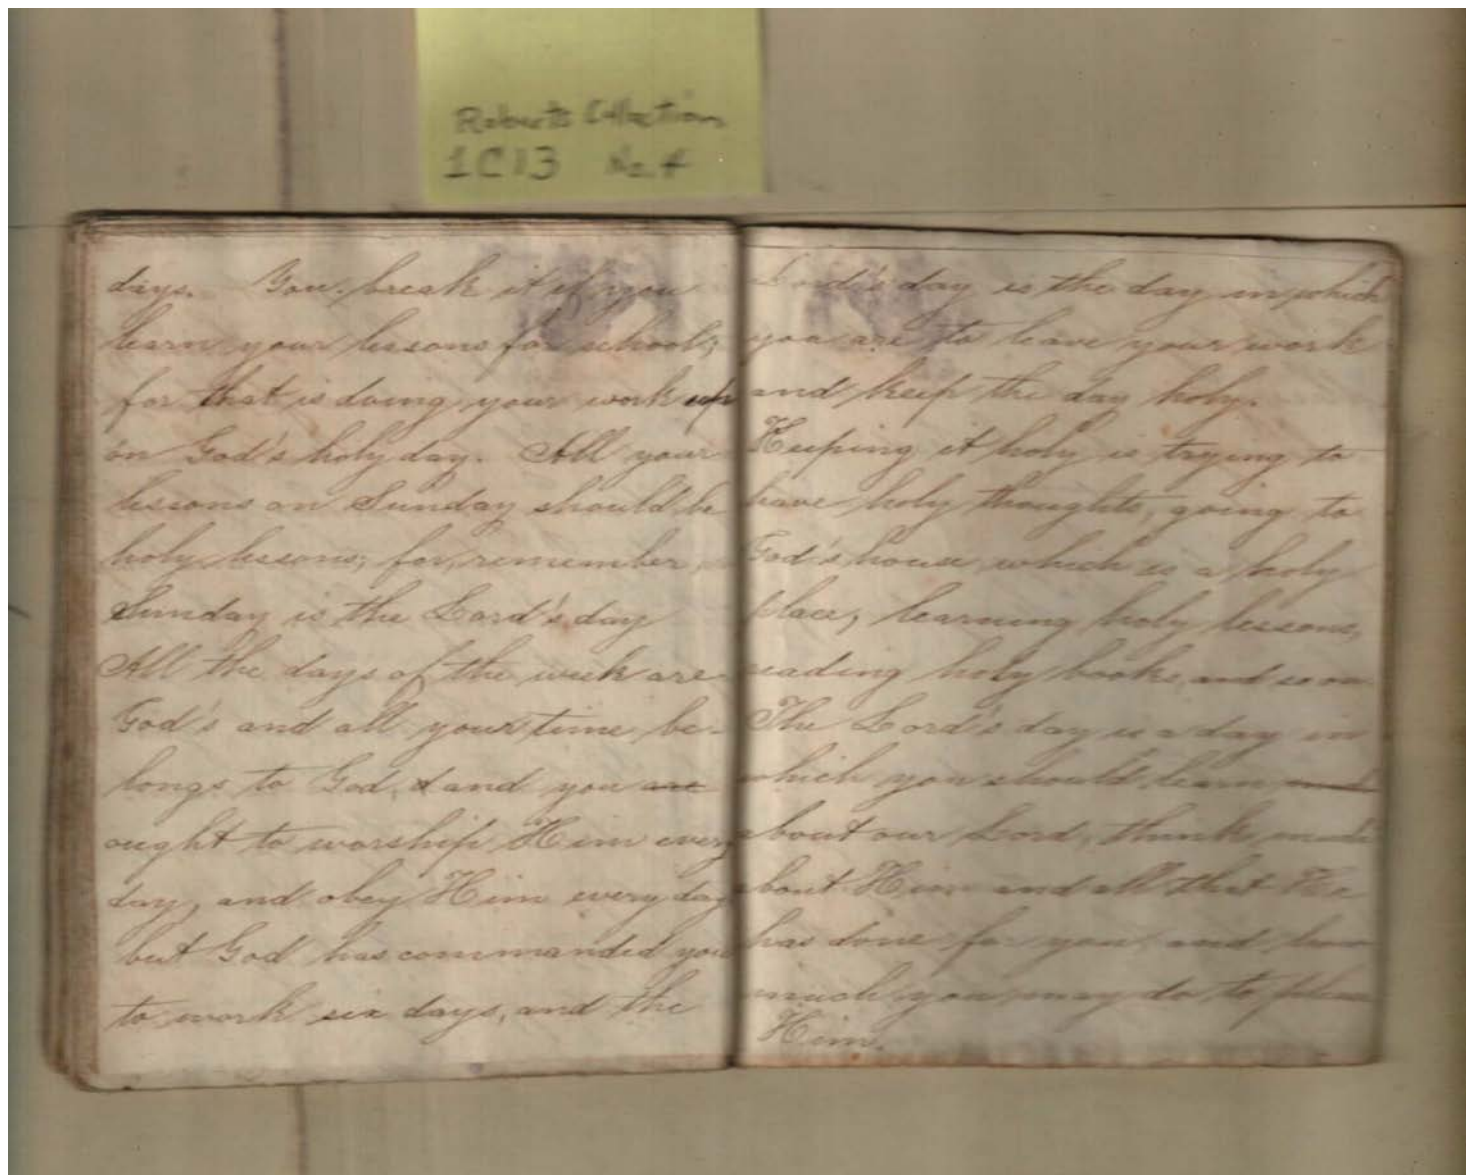 Roberts Collection
1C13 No. 4
days. You break it if you
learn your lessons for school;
for that is doing your work up
on God's holy day. All your
lessons on Sunday should be
holy lessons; for, remember
Sunday is the Lord's day
All the days of the week are
God's and all your time be-
longs to God, & and you are
ought to worship Him every
day, and obey Him every day
but God has commanded you
to work six days, and the
Lord's day is the day in which
you are to leave your work
and keep the day holy.
Keeping it holy is trying to
have holy thoughts, going to
God's house which is a holy
place, learning holy lessons,
reading holy books, and so on
The Lord's day is a day in
which you should learn
about our Lord, think much
about Him and all that He
has done for you, and how
much you may do to please
Him.